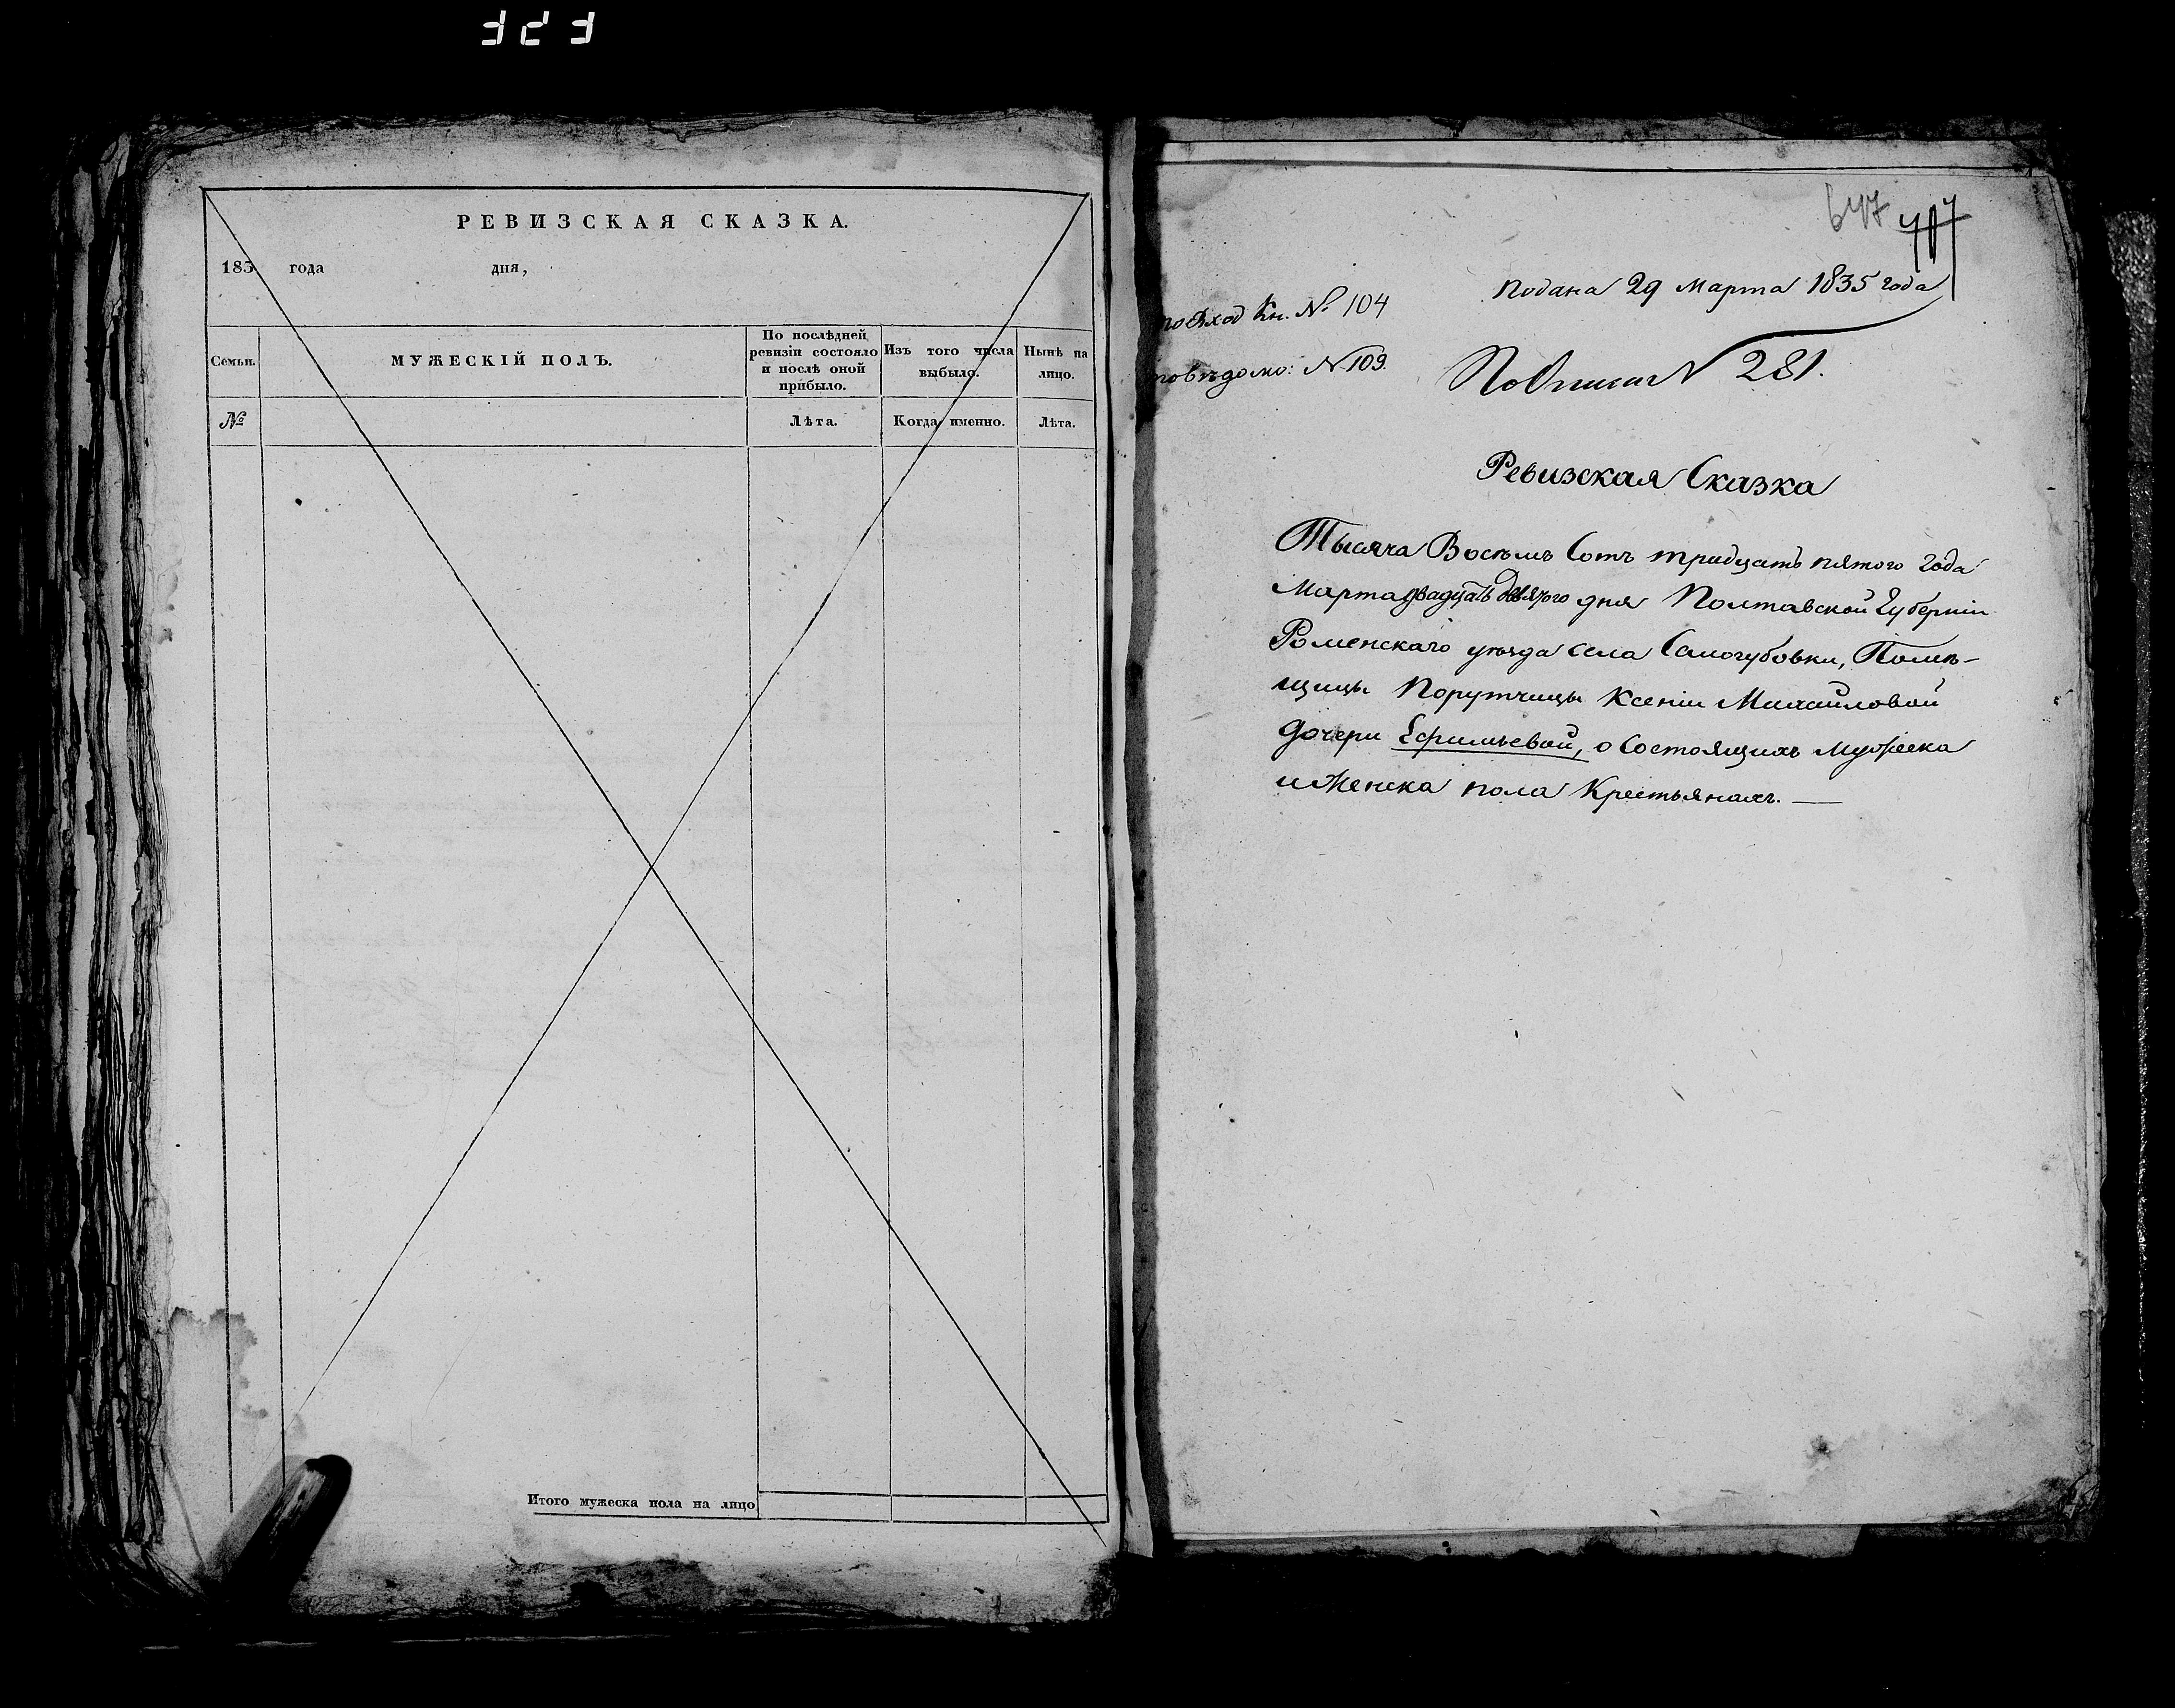 РЕВИЗСКАЯ СКАЗКА.
183 года дня,
Семьи.
МУЖЕСКІЙ ПОЛЪ.
По послѣдней
ревизіи состояло
и послѣ оной
прибыло.
Изъ того числа
выбыло.
Нынѣ на
лицо.
№
Лѣта.
Когда именно.
Лѣта.
Итого мужеска пола на лицо
647
Подана 29 Марта 1835 года
по Вход Кн. № 104
по вѣдомо: N 109.
N 281.
Ревизская Сказка
Тысяча Восемь Сотъ тридцать пятого года
Марта двадцать девятого дня Полтавской Губерніи
Роменскаго уѣзда села Самогубовки, Помѣ-
щицы Порутчицы Ксеніи Михайловой
дочери Ефимьевой, о Состоящихъ Мужеска
и Женска пола Крестьянахъ. —